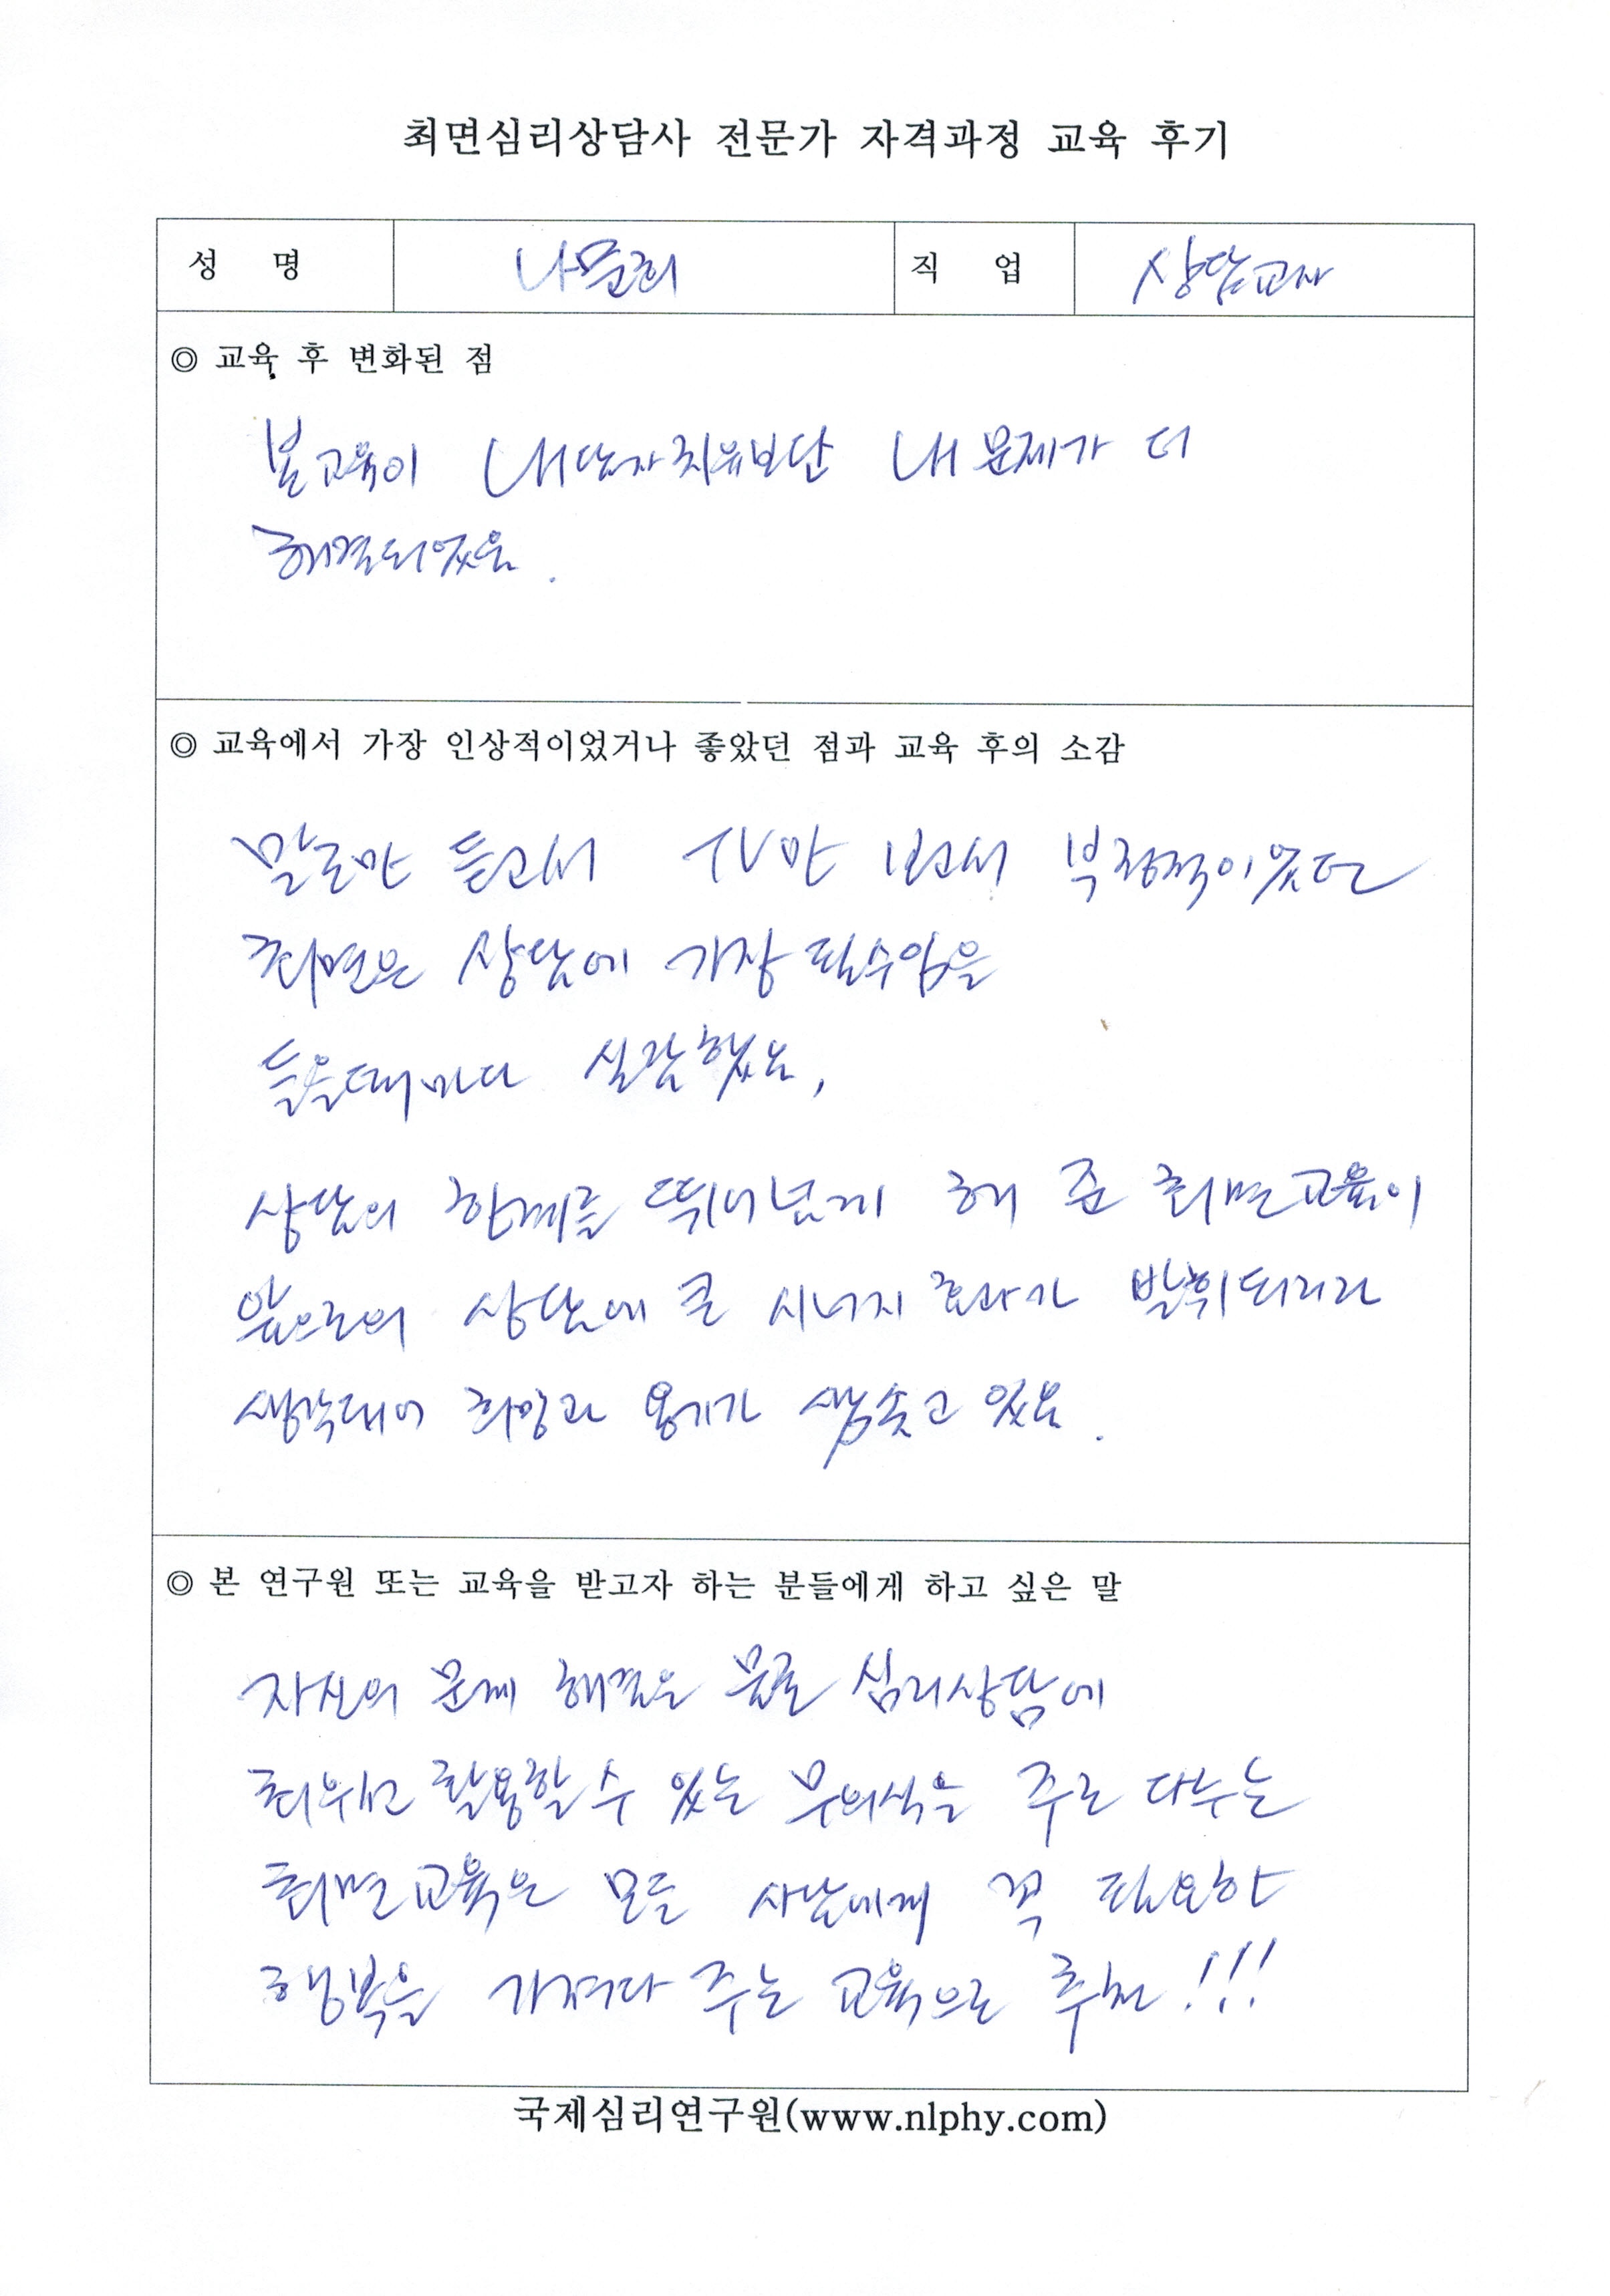 최면심리상담사 전문가 자격과정 교육 후기
성 명 직 업 상담교사
◎ 교육 후 변화된 점
본교육이 내담자치유보단 내 문제가 더
해결되었음.
◎ 교육에서 가장 인상적이었거나 좋았던 점과 교육 후의 소감
말로만 듣고서 TV만 보고서 부정적이었던
최면은 상담에 가장 필수임을
들을때마다 실감했음,
상담의 한계를 뛰어넘게 해 준 최면교육이
앞으로의 상담에 큰 시너지 효과가 발휘되리라
생각되어 희망과 용기가 샘솟고 있음.
◎ 본 연구원 또는 교육을 받고자 하는 분들에게 하고 싶은 말
자신의 문제 해결은 물론 심리상담에
활용할 수 있는 무의식을 주로 다루는
최면교육은 모든 사람에게 꼭 필요한
행복을 가져다 주는 교육으로 추천!!!
국제심리연구원(www.nlphy.com)